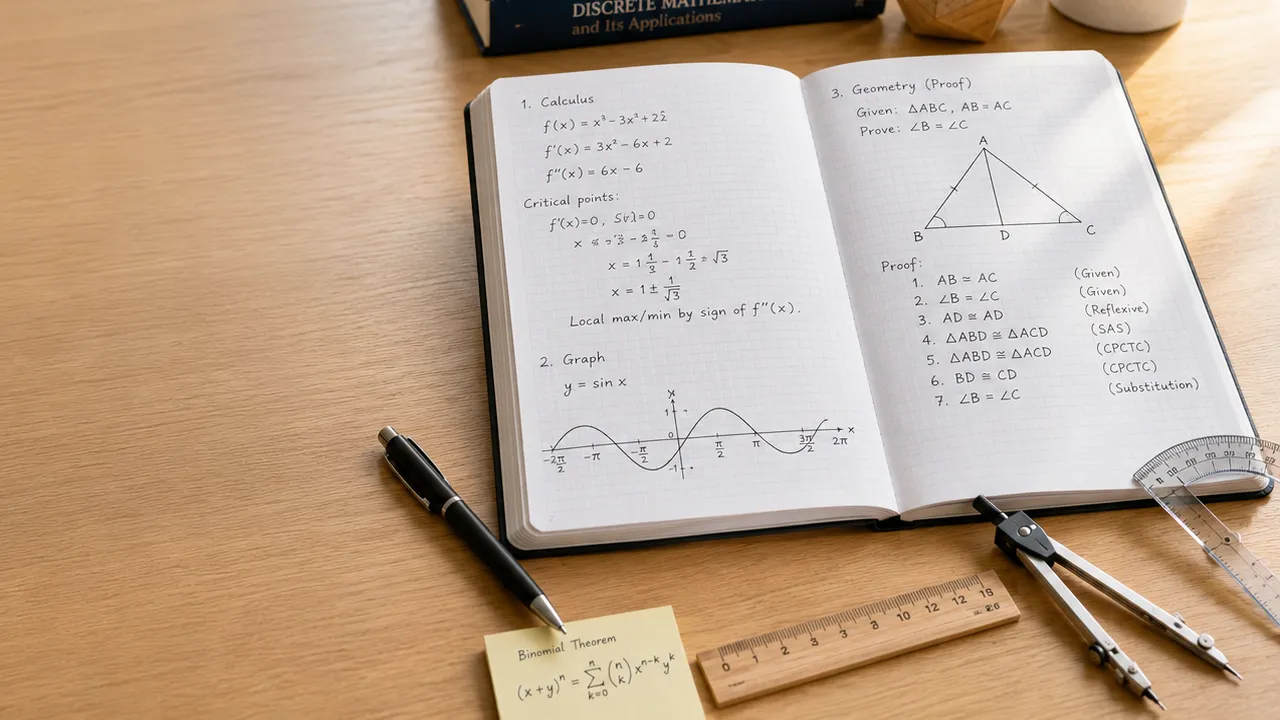 DISCRETE MATHEMA
and Its Applications
1. Calculus
f(x) = x³ - 3x² + 2
f'(x) = 3x² - 6x + 2
f''(x) = 6x - 6
Critical points:
f'(x)=0,
x = 1 1/3 - 1 1/2 = √3
x = 1 ± 1/√3
Local max/min by sign of f''(x).
2. Graph
y = sin x
x
1
0
-1
-2π/2 -π -π/2 π/2 π 3π/2 2π x
3. Geometry (Proof)
Given: △ABC, AB = AC
Prove: ∠B = ∠C
A
B D C
Proof:
1. AB ≃ AC (Given)
2. ∠B = ∠C (Given)
3. AD ≅ AD (Reflexive)
4. △ABD ≅ △ACD (SAS)
5. △ABD ≅ △ACD (CPCTC)
6. BD ≅ CD (CPCTC)
7. ∠B = ∠C (Substitution)
Binomial Theorem
(x+y)ⁿ = ∑ₖ₌₀ⁿ (n k) xⁿ⁻ᵏ yᵏ
0 1 2 3 3 3 10 12 12 15